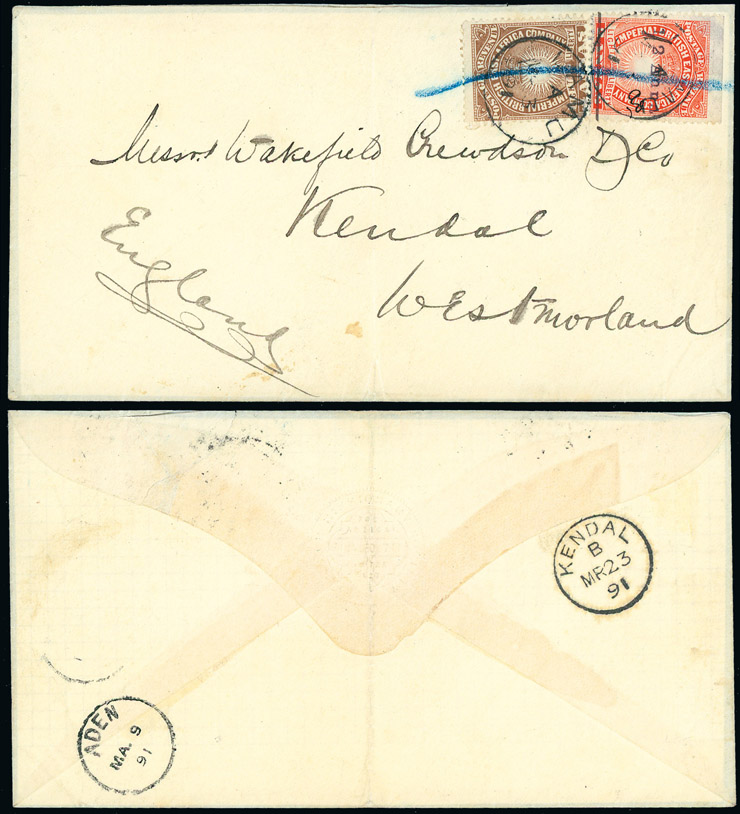 IMPERIAL BRITISH EAST AFRICA COMPANY
LAMU
Messrs Wakefield Crewdson & Co
Kendal
Westmorland
England
KENDAL
B
MR23
91
ADEN
MA. 9
91